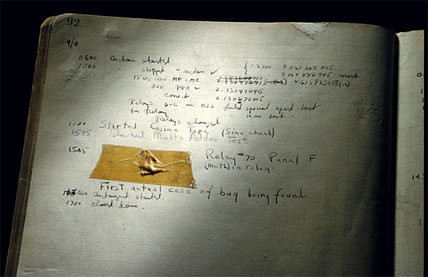 92
9/9
0800 antan started
1000 stopped - antan ✓ 1.2700 9.037 847 025
9.037 846 995 correct
MP-MC
PRO 2 2.130476415
correct 2.130676415
Relays 6-2 in 033 failed special speed test
in relay test.
Relays changed
1100 Started Cosine Tape (Sine check)
Started Multi Adder Test.
1545 Relay #70 Panel F
(moth) in relay.
First actual case of bug being found.
antangent started.
1700 closed down.